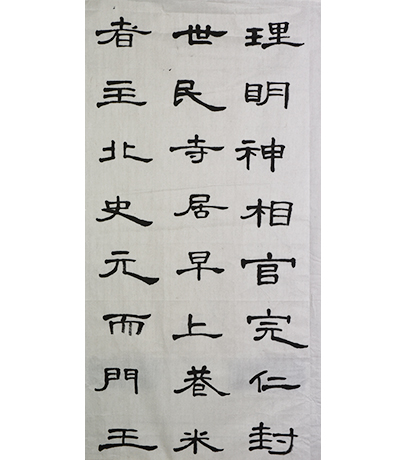 理明神相官完仁封
世民寺居早上巷米
者主北史元而門王